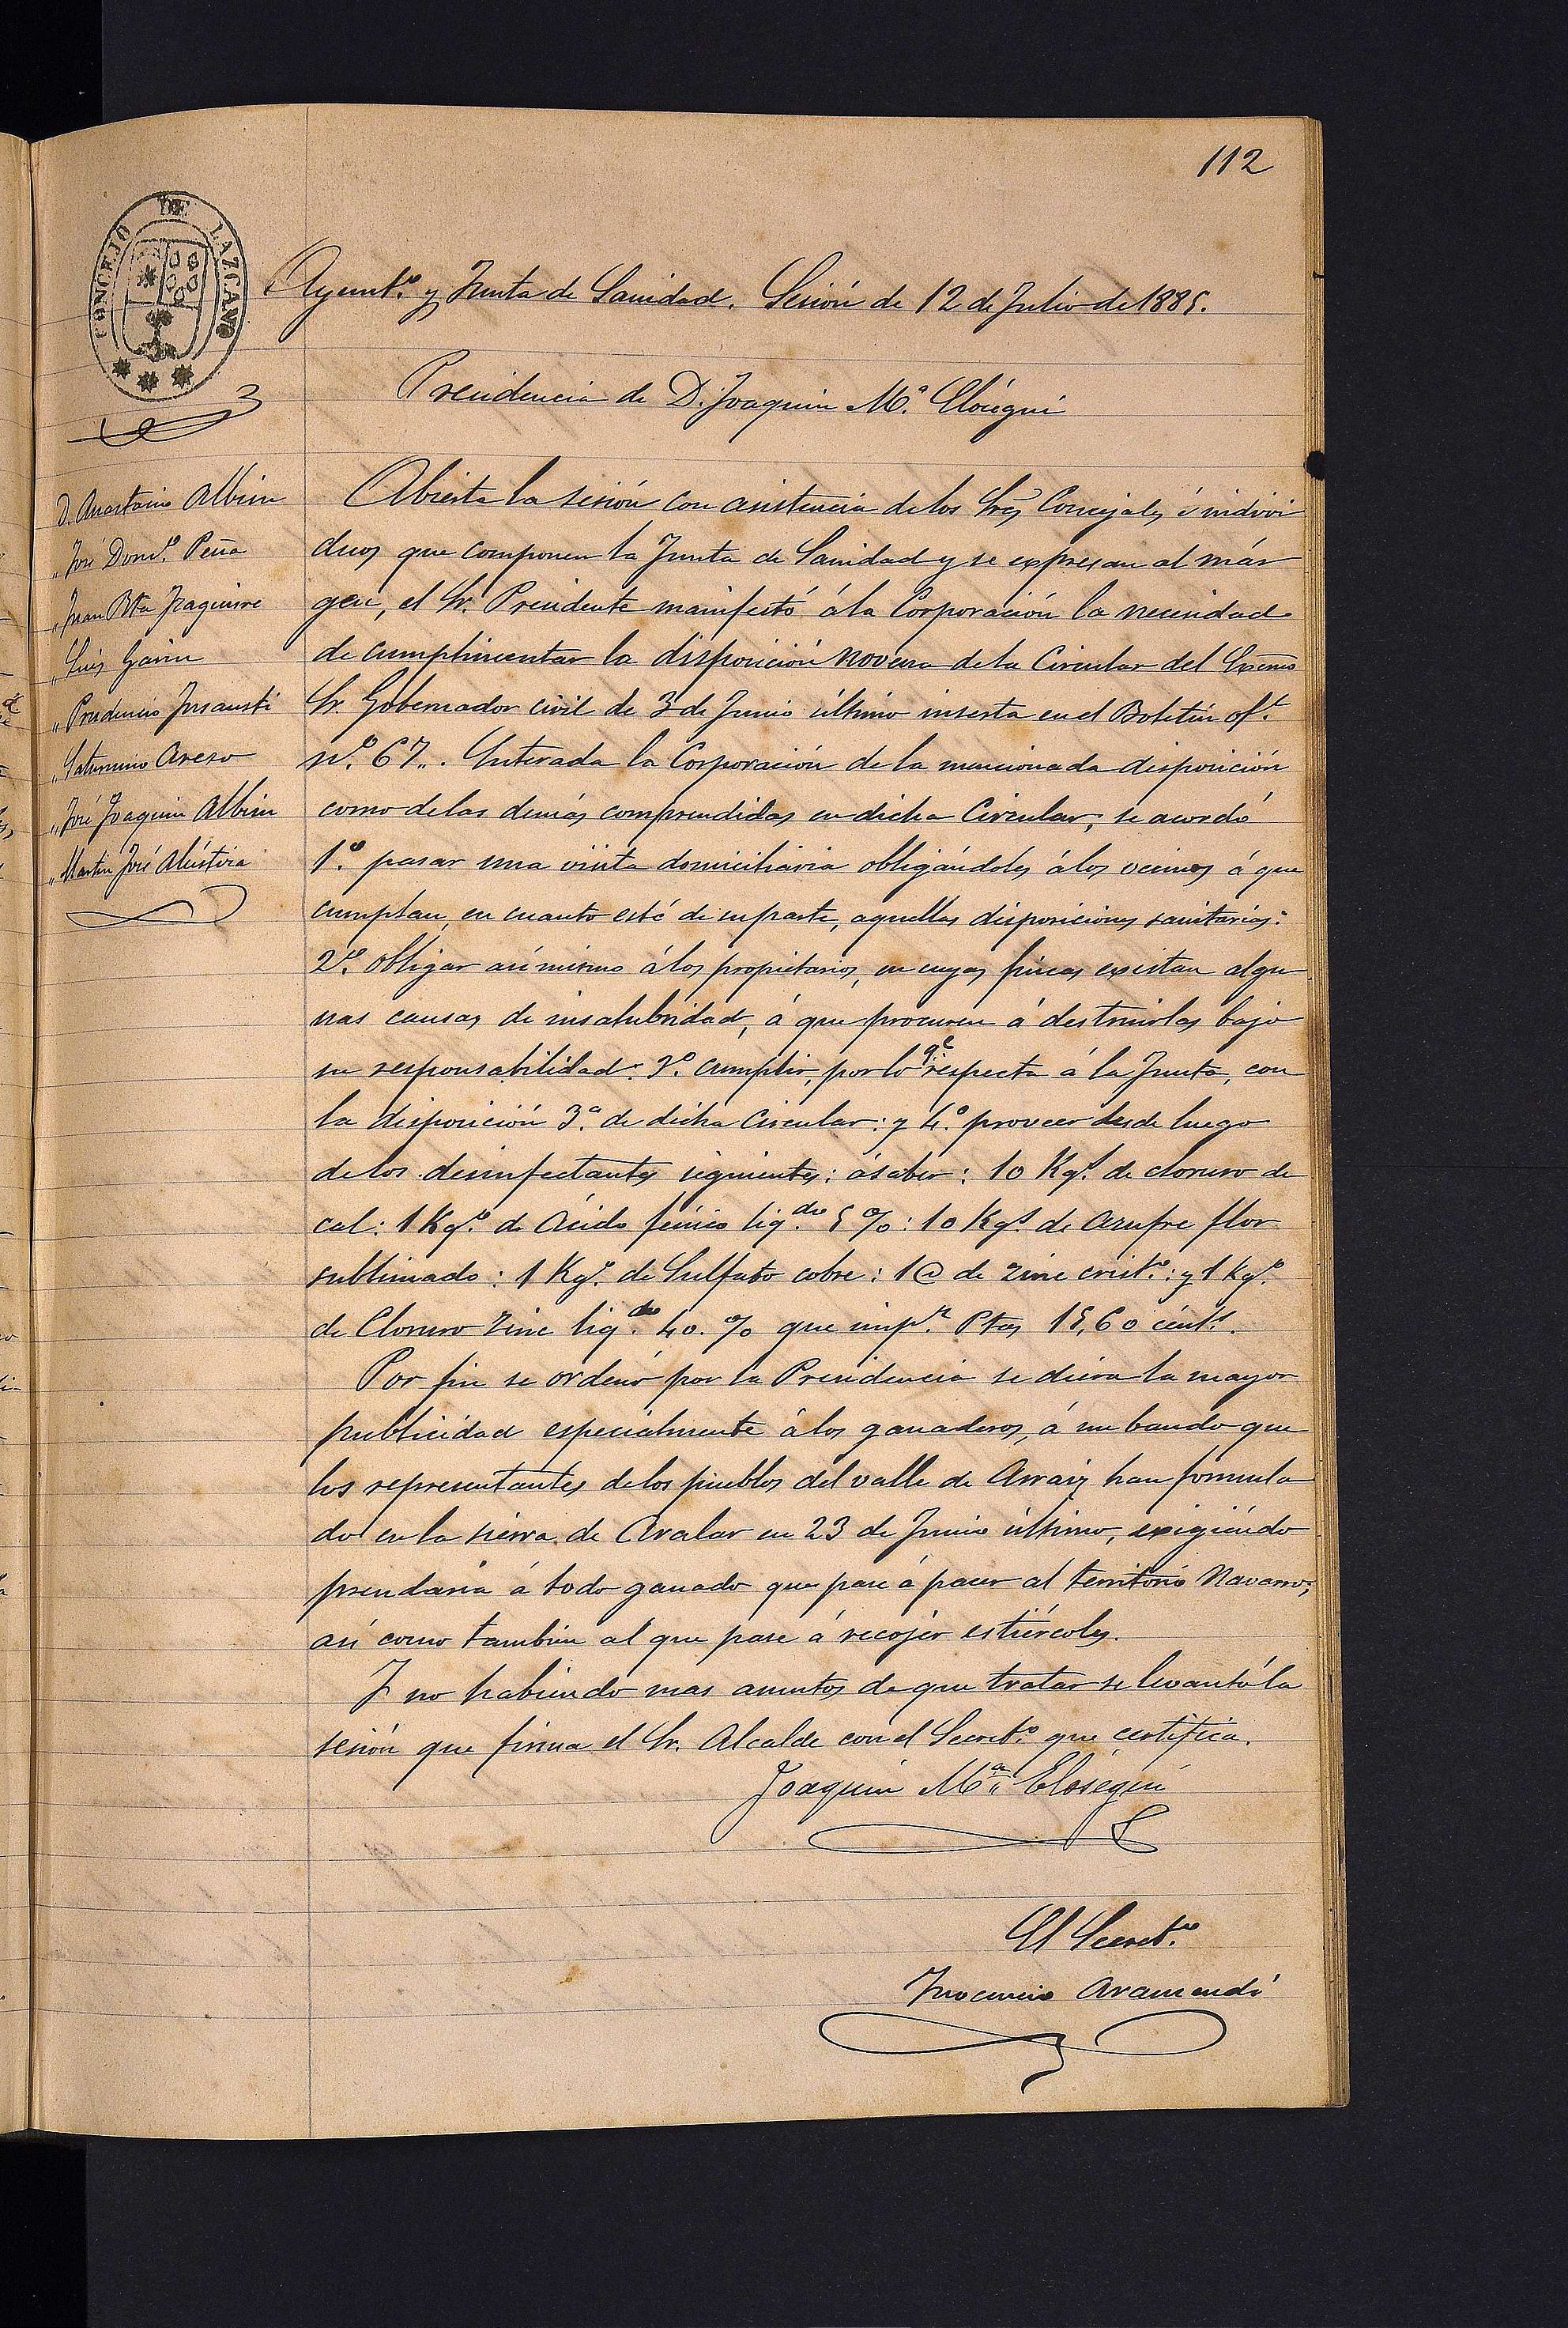 112
CONCEJO DE LAZCANO
Ayunt.º y Junta de Sanidad. Sesión de 12 de Julio de 1885.
Presidencia de D. Joaquin M.ª Elósegui
D. Anastasio Albisu
" José Dom.º Peña
" Juan Bta Izaguirre
" Luis Garin
" Prudencio Insausti
" Saturnino Areso
" José Joaquin Albisu
" Martin José Alústiza
Abierta la sesión con asistencia de los Sres Concejales é indivi
duos que componen la Junta de Sanidad y se expresan al már
gen, el Sr. Presidente manifestó á la Corporación la necesidad
de cumplimentar la disposición novena de la Circular del Excmo
Sr. Gobernador civil de 3 de Junio último inserta en el Boletín of.l
n.º 67. Enterada la Corporación de la mencionada disposición
como de las demás comprendidas en dicha Circular, se acordó
1.º pasar una visita domiciliaria obligándoles á los vecinos á que
cumplan, en cuanto esté de su parte, aquellas disposiciones sanitarias:
2.º obligar asímismo á los propietarios, en cuyas fincas existan algu
nas causas de insalubridad, á que procuren á destruirlas bajo
su responsabilidad: 3.º cumplir, por lo q.e respecta á la Junta, con
la disposición 3.ª de dicha Circular: y 4.º proveer desde luego
de los desinfectantes siguientes: á saber: 10 Kg.s de cloruro de
cal: 1 Kg.º de Ácido fénico liq.do 5 %: 10 Kg.s de Azufre flor
sublimado: 1 Kg.º de Sulfato cobre: 1 @ de zinc crist.º: y 1 Kg.º
de Cloruro Zinc liq.do 40 % que imp.n Ptas 15,60 cént.s.
Por fin se ordenó por la Presidencia se diera la mayor
publicidad especialmente á los ganaderos, á un bando que
los representantes de los pueblos del valle de Arraiz han formula
do en la sierra de Aralar en 23 de Junio último, exigiéndo
prendaria á todo ganado que pase á pacer al territorio Navarro;
así como tambien al que pase á recojer estiércoles.
Y no habiendo mas asuntos de que tratar se levantó la
sesión que firma el Sr. Alcalde con el Secret.º que certifica.
Joaquin M.ª Elósegui
El Secret.º
Inocencio Aramendi